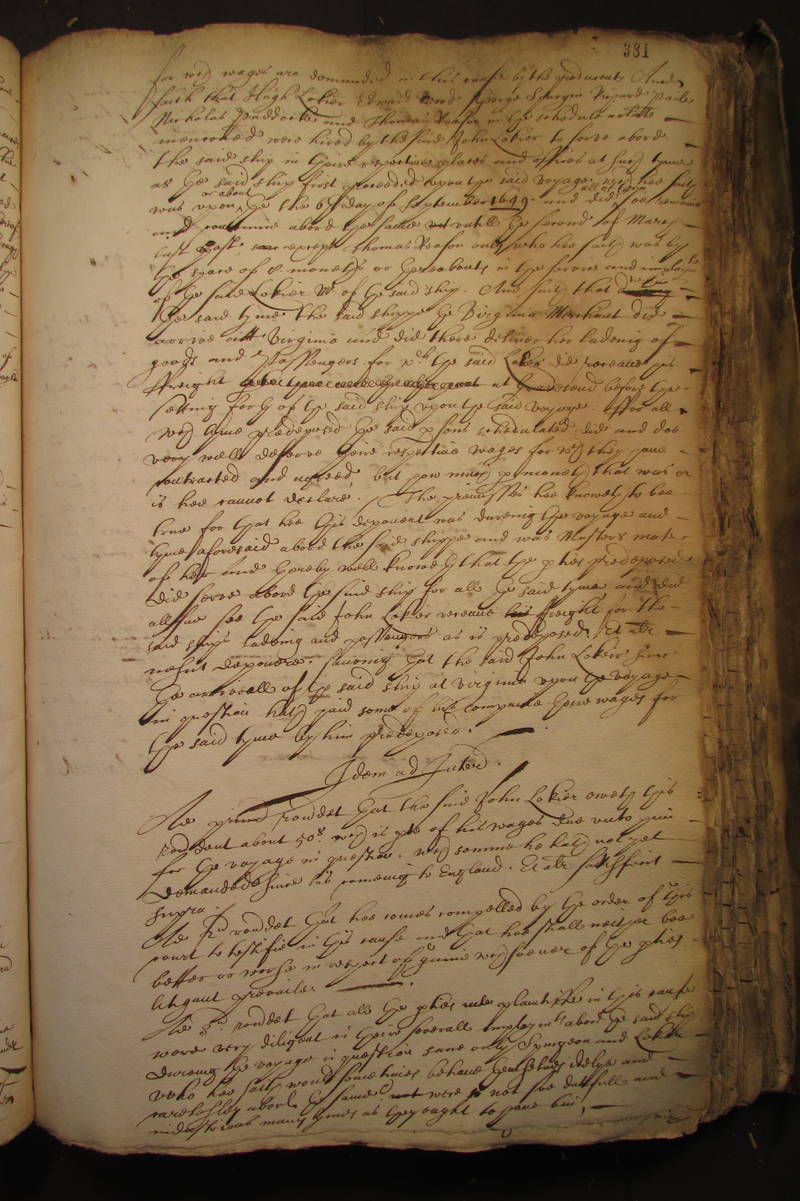 331
for w:ch wages are demanded in this cause by the producents, And
saith that Hugh Lokier Edward Wood George Spurgin Richard
Nicholas Paddocke and Thomas Reason in the schedule
mencioned were hired by the said John Lokier to serve abord
the said ship in theire respective places and offices at such tyme
as the said ship first proceeded upon the said voyage, w:ch hee saith
was upon or about the 6th day of September 1649. and did all of them soe remaine
and continue abord the same untill the second of
last past, except Thomas Reason only, who hee saith was by
the space of 8. moneths or thereabouts in the service and imploym:t
of the said Lokier M:r of the said ship. And saith that
the said tyme the said shippe the Virginia Merchant did
arrive att Virginia and did there deliver her ladeing of
goods and Passengers for w:ch the said Lokier did receave his
freight at before the
setting forth of the said ship upon the said voyage. ffor all
w:ch tyme predeposed the said psons schedulated did and doe
very well deserve theire respective wages for w:ch they have
contracted and agreed but how much p moneth that was or
is hee cannot declare. The premisses hee knoweth to bee
true for that hee this deponent was dureing the voyage and
tyme aforesaid abord the said shippe and was Masters mate
of her and thereby well knoweth that the pties predeposed
did serve abord the said ship for all the said tyme and did
alsoe see the said John Lokier receave freight for the
said ships ladeing and passengers as is predeposed, Et alr
nescit deponere. saveing that the said John Lokier since
the arrivall of the said ship at Virginia upon the voyage
in question hath paid some of his companie theire wages for
the said tyme by him predeposed.
Idem ad Interria.
Ad primu rendet that the said John Lokier oweth this
rendent about 50s. w:ch is pte of his wages due unto him
for the voyage in question. w:ch somme he hath not yet
demanded since his comeing to England. Et alr satisfecit
supra.
Ad 2u rendet that hee comes compelled by the order of this
court to testifie in this cause and that hee shall neither bee
better or worse in respect of the game w:chsoever of the pties
litigant prevailes.
Ad 3u. rendet that all the pties plaintiffe in this cause
were very diligent in theire severall imploym:ts abord the said ship
dureing the voyage in question save only Spurgeon and Lokier
who hee saith would sometimes behave themselves idelye and
carelesley abord the same and were not soe dutifull and
industrious many tymes as they ought to have bin,